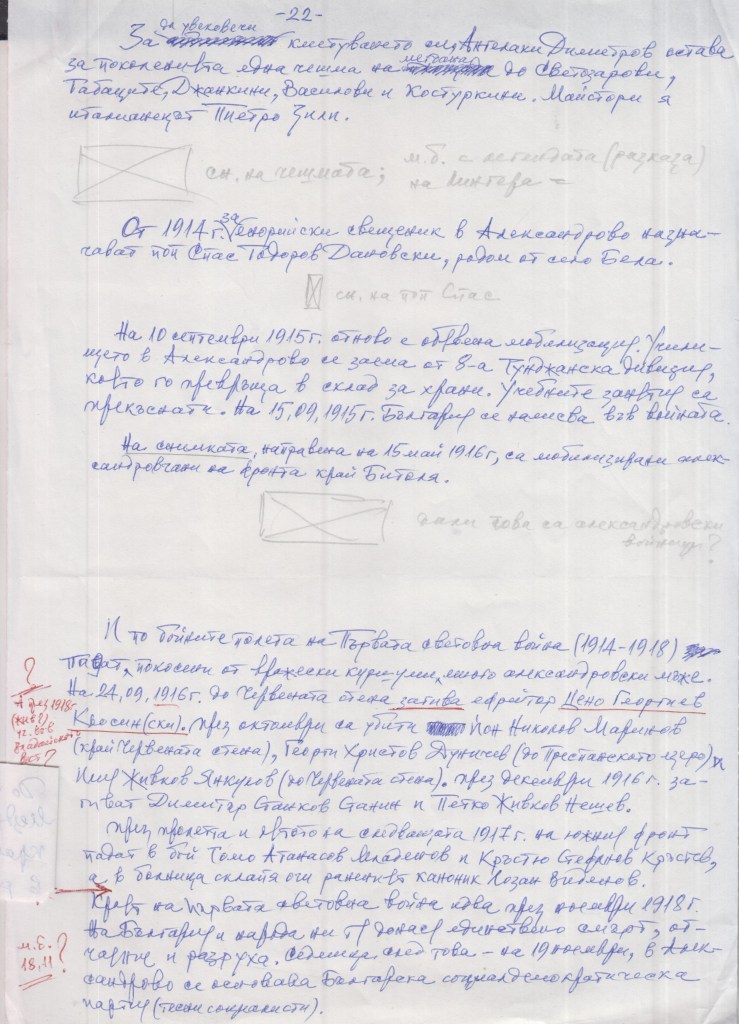 -22-
да увековечи
За кметуването си, Ангелаки Димитров остава
за поколенията една чешма на мегдана до Светозарови,
Табаците, Джанкини, Василови и Костуркини. Майстори я
италианецът Пиетро Зили.
сн. на чешмата; м.б. с легендата (разказа)
на Лингера –
От 1914 г. за енорийски свещеник в Александрово назна-
чават поп Спас Тодоров Дановски, родом от село Бела.
сн. на поп Спас
На 10 септември 1915 г. отново е обявена мобилизация. Учили-
щето в Александрово се заема от 8-а Тунджанска дивизия,
която го превръща в склад за храни. Учебните занятия са
прекъснати. На 15,09,1915 г. България се намесва във войната.
На снимката, направена на 15 май 1916 г, са мобилизирани алек-
сандровчани на фронта край Битоля.
дали това са александровски
войници?
И по бойните полета на Първата световна война (1914-1918)
падат, покосени от вражески куршуми, много александровски мъже.
На 24,09,1916 г. до Червената стена загива ефрейтор Цено Георгиев
Кросин(ски). През октомври са убити Цон Николов Маринов
(край Червената стена), Георги Христов Дуничев (до Преспанското езеро) и
Илия Живков Янкулов (до Червената стена). През декември 1916 г. за-
гиват Димитър Станков Станин и Петко Живков Нешев.
През пролетта и лятото на следващата 1917 г. на южния фронт
падат в бой Томо Атанасов Младенов и Кръстю Стефанов Кръстев,
а в болница склапя очи раненият каноник Лозан Виденов.
Краят на Първата световна война идва през ноември 1918 г.
На България и народа ни тя донася единствено смърт, от-
чаяние и разруха. Седмица след това – на 19 ноември, в Алек-
сандрово се основава Българска социалдемократическа
партия (тесни социалисти).
?
А през 1918 г.
(жив?)
уч. във
Владайското
въст?
м.Е.
18,11 ?